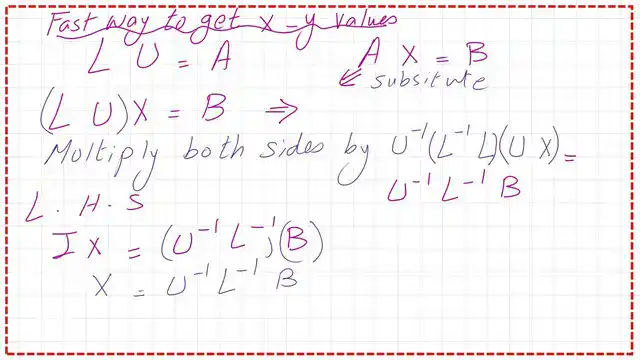 Fast way to get x-y values
L U = A
A X = B
subsitute
(L U)X = B ⇒
Multiply both sides by U⁻¹(L⁻¹ L)(U X) =
U⁻¹ L⁻¹ B
L.H.S
I X = (U⁻¹ L⁻¹)(B)
X = U⁻¹ L⁻¹ B